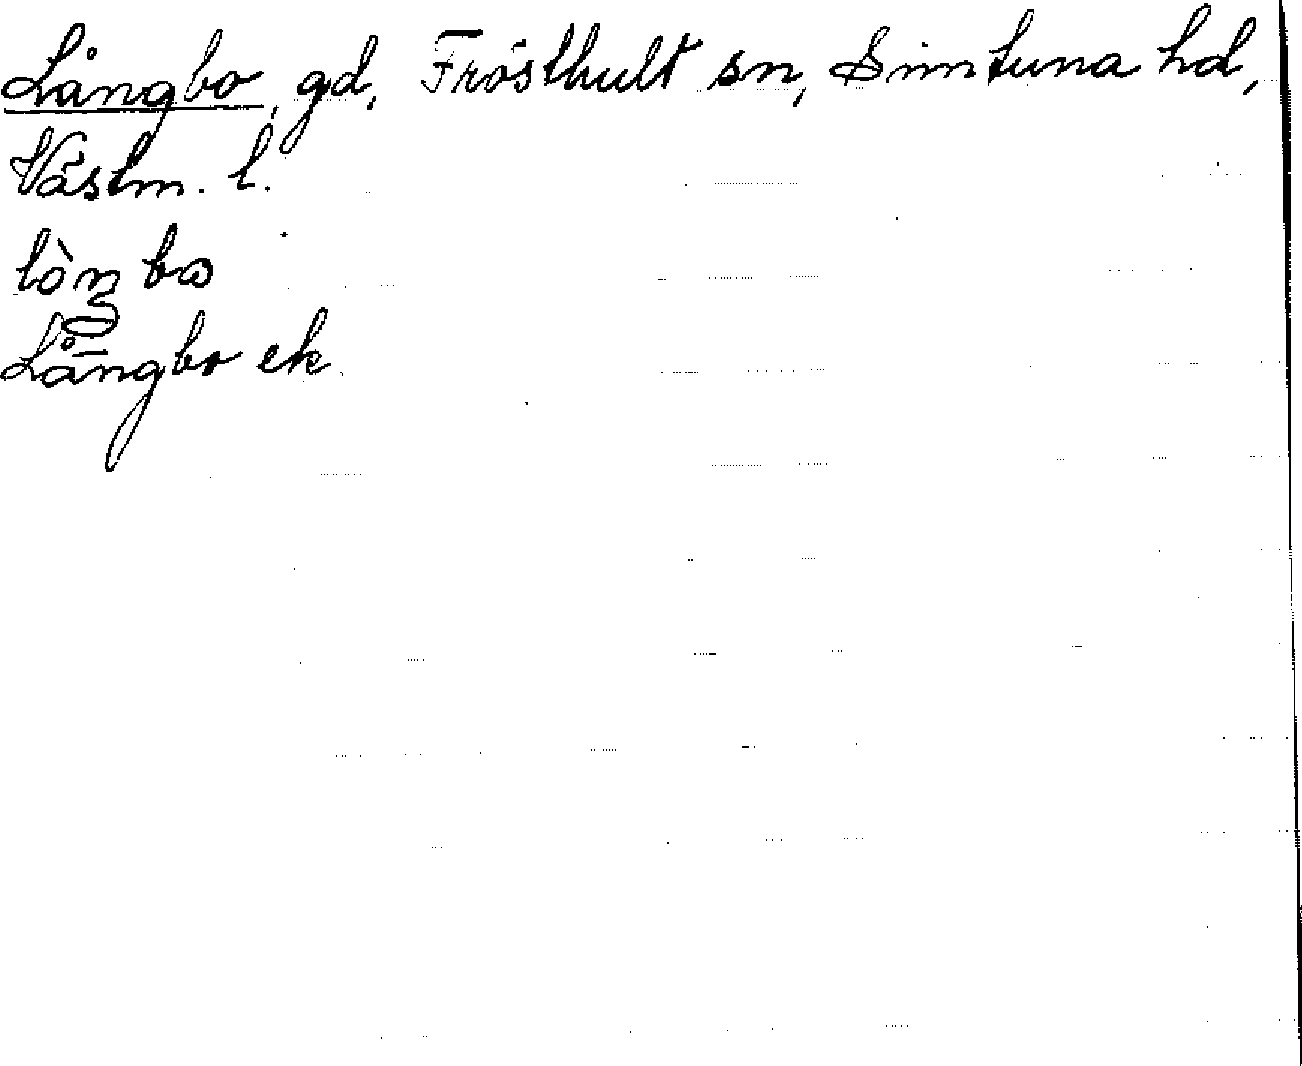 Långbo, gd, Frösthult sn, Simtuna hd,
Västm. l.
lòŋbω
Långbo ek.